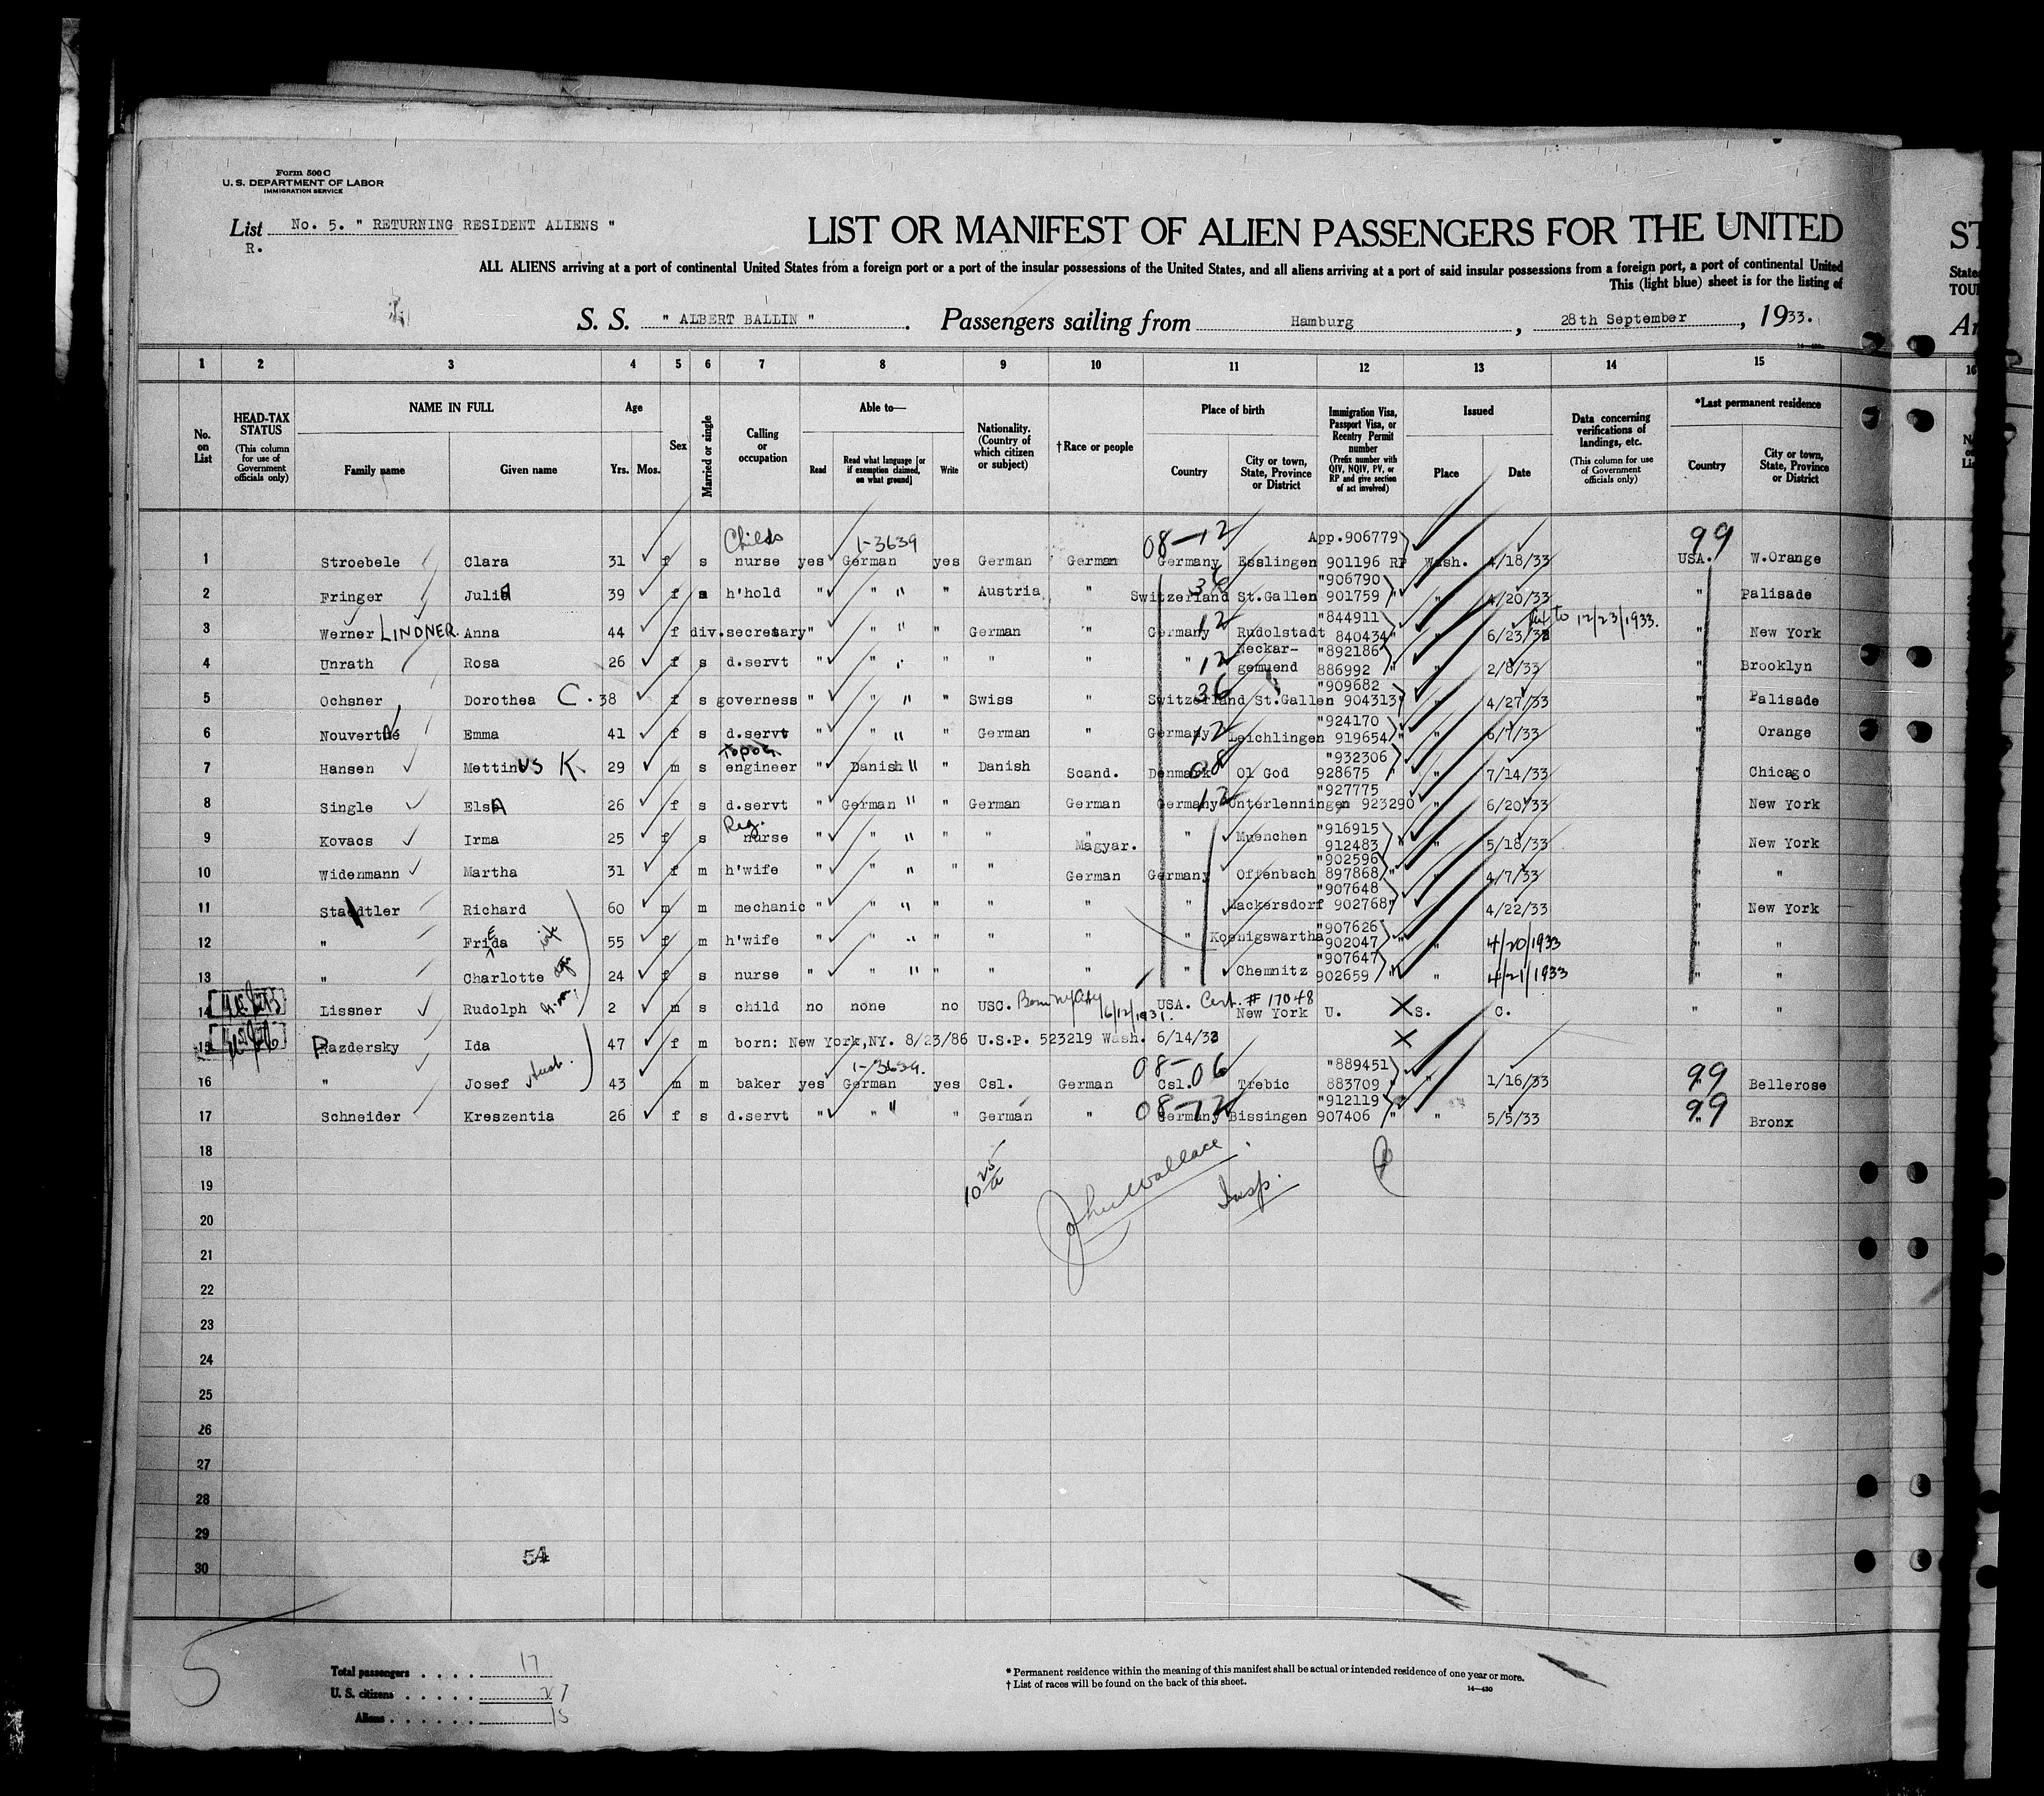 Form 500 C
U. S. DEPARTMENT OF LABOR
IMMIGRATION SERVICE
List No. 5. " RETURNING RESIDENT ALIENS "
R.
LIST OR MANIFEST OF ALIEN PASSENGERS FOR THE UNITED
ALL ALIENS arriving at a port of continental United States from a foreign port or a port of the insular possessions of the United States, and all aliens arriving at a port of said insular possessions from a foreign port, a port of continental United
This (light blue) sheet is for the listing of
S. S. " ALBERT BALLIN " . Passengers sailing from Hamburg , 28th September , 1933.
1 2 3 4 5 6 7 8 9 10 11 12 13 14 15
No. on List
HEAD-TAX STATUS (This column for use of Government officials only)
NAME IN FULL Family name Given name
Age Yrs. Mos.
Sex
Married or single
Calling or occupation
Able to— Read Read what language [or if exemption claimed, on what ground] Write
Nationality. (Country of which citizen or subject)
† Race or people
Place of birth Country City or town, State, Province or District
Immigration Visa, Passport Visa, or Reentry Permit number (Prefix number with QIV, NQIV, PV, or RP and give section of act involved)
Issued Place Date
Data concerning verifications of landings, etc. (This column for use of Government officials only)
*Last permanent residence Country City or town, State, Province or District
Childs 1-3639 08-12 App.906779 99
1 Stroebele Clara 31 f s nurse yes German yes German German Germany Esslingen 901196 RP Wash. 4/18/33 USA. W.Orange
36 "906790
2 Fringer Julia 39 f s h'hold " " " Austria " Switzerland St.Gallen 901759 " " 4/20/33 " Palisade
12 "844911 to 12/23/1933.
3 Werner LINDNER. Anna 44 f div. secretary " " " " German " Germany Rudolstadt 840434 " " 6/23/32 " New York
12 Neckar- "892186
4 Unrath Rosa 26 f s d.servt " " " " " " gemuend 886992 " " 2/8/33 " Brooklyn
36 "909682
5 Ochsner Dorothea C. 38 f s governess " " " " Swiss " Switzerland St.Gallen 904313 " " 4/27/33 " Palisade
12 "924170
6 Nouvertne Emma 41 f s d.servt " " " " German " Germany Leichlingen 919654 " " 6/7/33 " Orange
topog. 08 "932306
7 Hansen Mettinus K. 29 m s engineer " Danish " " Danish Scand. Denmark Ol God 928675 " " 7/14/33 " Chicago
12 "927775
8 Single Elsa 26 f s d.servt " German " " German German Germany Unterlenningen 923290 " 6/20/33 " New York
Reg. "916915
9 Kovacs Irma 25 f s nurse " " " " " Magyar. " Muenchen 912483 " 5/18/33 " New York
"902596
10 Widenmann Martha 31 f m h'wife " " " " " German Germany Offenbach 897868 " " 4/7/33 " "
"907648
11 Staedtler Richard 60 m m mechanic " " " " " " " Mackersdorf 902768 " " 4/22/33 " New York
"907626
12 " Frieda wife 55 f m h'wife " " " " " " " Koenigswartha 902047 " " 4/20/1933 " "
"907647
13 " Charlotte 24 f s nurse " " " " " " " Chemnitz 902659 " " 4/21/1933 " "
14 Lissner Rudolph 2 m s child no none no USC. Born NY City 6/12/1931. USA. Cert. # 17048 New York U. S. C. " "
15 Razdersky Ida 47 f m born: New York,NY. 8/23/86 U.S.P. 523219 Wash. 6/14/33
1-3639. 08-06 "889451 99
16 " Josef Husb. 43 m m baker yes German yes Csl. German Csl. Trebic 883709 " " 1/16/33 " Bellerose
08-12 "912119 99
17 Schneider Kreszentia 26 f s d.servt " " " " German " Germany Bissingen 907406 " " 5/5/33 " Bronx
18
19
John Wallace
Insp.
20
21
22
23
24
25
26
27
28
29
54
30
5
Total passengers . . . . 17
U. S. citizens . . . . . 2
Aliens . . . . . . 15
* Permanent residence within the meaning of this manifest shall be actual or intended residence of one year or more.
† List of races will be found on the back of this sheet.
14—430